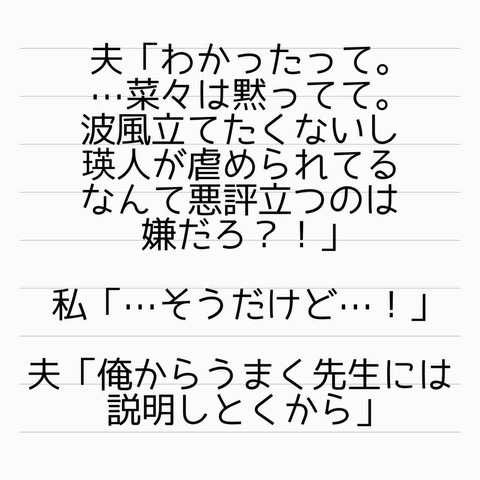 夫「わかったって。
…菜々は黙ってて。
波風立てたくないし
瑛人が虐められてる
なんて悪評立つのは
嫌だろ？！」
私「…そうだけど…！」
夫「俺からうまく先生には
説明しとくから」